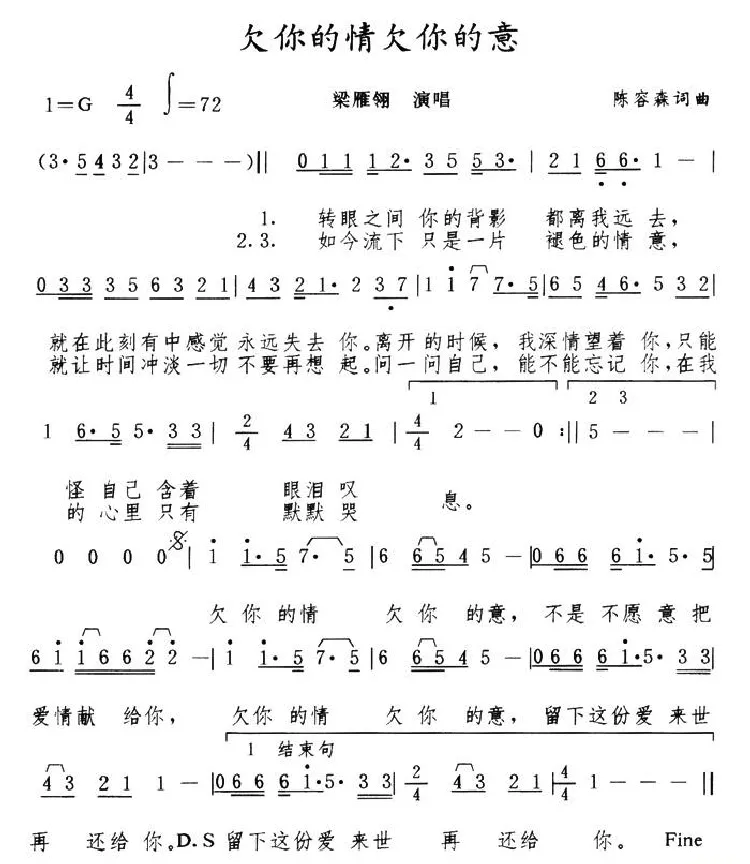 欠你的情欠你的意
1=G 4/4 ∫=72 梁雁翎 演唱 陈容森词曲
(3·5 4 3 2|3 - - -)|| 0 1 1 1 2· 3 5 5 3·| 2 1 6 6· 1 -|
1. 转眼之间 你的背影 都离我远 去，
2.3. 如今流下 只是一片 褪色的情 意，
0 3 3 3 5 6 3 2 1|4 3 2 1· 2 3 7|1 i 7 7·5|6 5 4 6·5 3 2|
就在此刻有中感觉 永远失去 你。离开的时候，我深情望着 你，只能
就让时间冲淡一切 不要再想 起。问一问自己，能不能忘记 你，在我
1 2 3
1 6·5 5·3 3| 2/4 4 3 2 1|4/4 2 - - 0 :|| 5 - - -|
怪 自己 含着 眼泪 叹 息。
的 心里 只有 默默 哭
0 0 0 0 𝄋| i i·5 7·5|6 6 5 4 5 -|0 6 6 6 i·5·5|
欠 你 的情 欠 你 的意，不是 不愿 意 把
6 i i 6 6 2 2 -|i i·5 7·5|6 6 5 4 5 -|0 6 6 6 i·5·3 3|
爱情献 给你， 欠你 的情 欠 你 的意，留下这份爱 来世
1 结束句
4 3 2 1 1 -|0 6 6 6 i·5·3 3|2/4 4 3 2 1|4/4 1 - - -||
再 还给 你。D.S 留下这份爱 来世 再 还给 你。 Fine